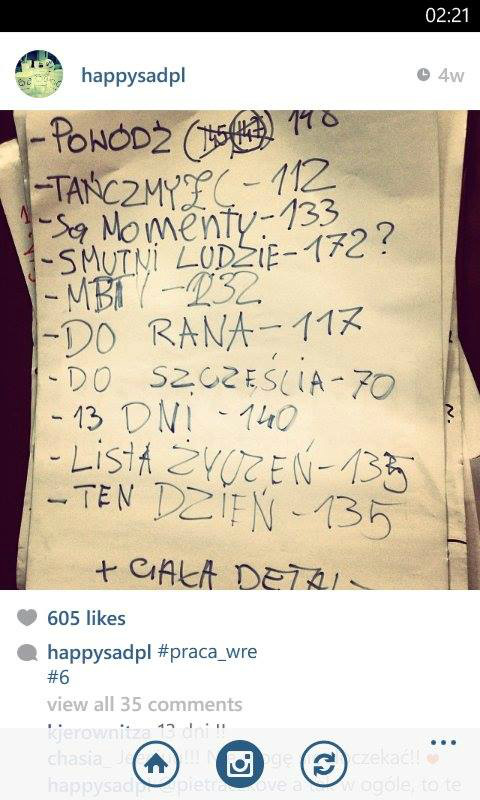 02:21
happysadpl
4w
- POWÓDŹ (145 147) 148
- TAŃCZMYŻ - 112
- Są Momenty - 133
- SMUTNI LUDZIE - 172?
- MBTY - 232
- DO RANA - 117
- DO SZCZĘŚCIA - 70
- 13 DNI - 140
- LiStA ŻYCZEŃ - 135
- TEN DZIEŃ - 135
+ CAŁA DETAL
605 likes
happysadpl #praca_wre
#6
view all 35 comments
kjerownitza 13 dni !!
chasia_ doczekać!!
happysadpl @pietraczkove a tak w ogóle, to te